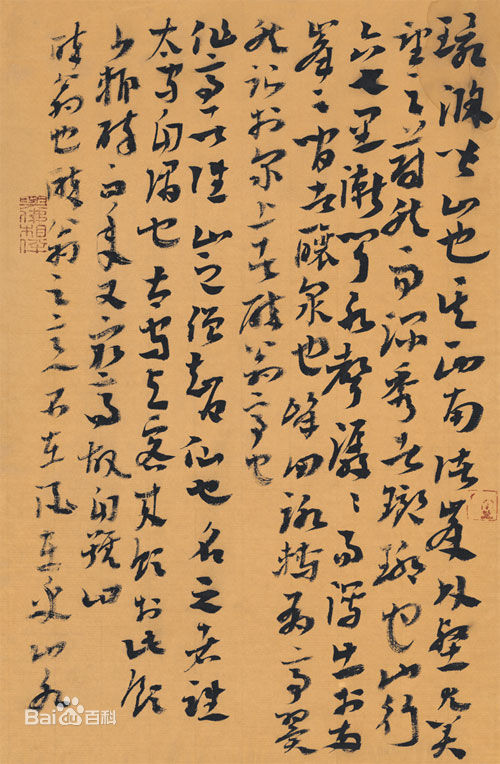 環滁皆山也其西南諸峯林壑尤美
望之蔚然而深秀者瑯琊也山行
六七里漸聞水聲潺〻而瀉出於兩
峯之間者釀泉也峰回路轉有亭翼
然臨於泉上者醉翁亭也
作亭者誰山之僧智仙也名之者誰
太守自謂也太守與客來飲於此飲
少輒醉而年又最高故自號曰
醉翁也醉翁之意不在酒在乎山水
Bai百科